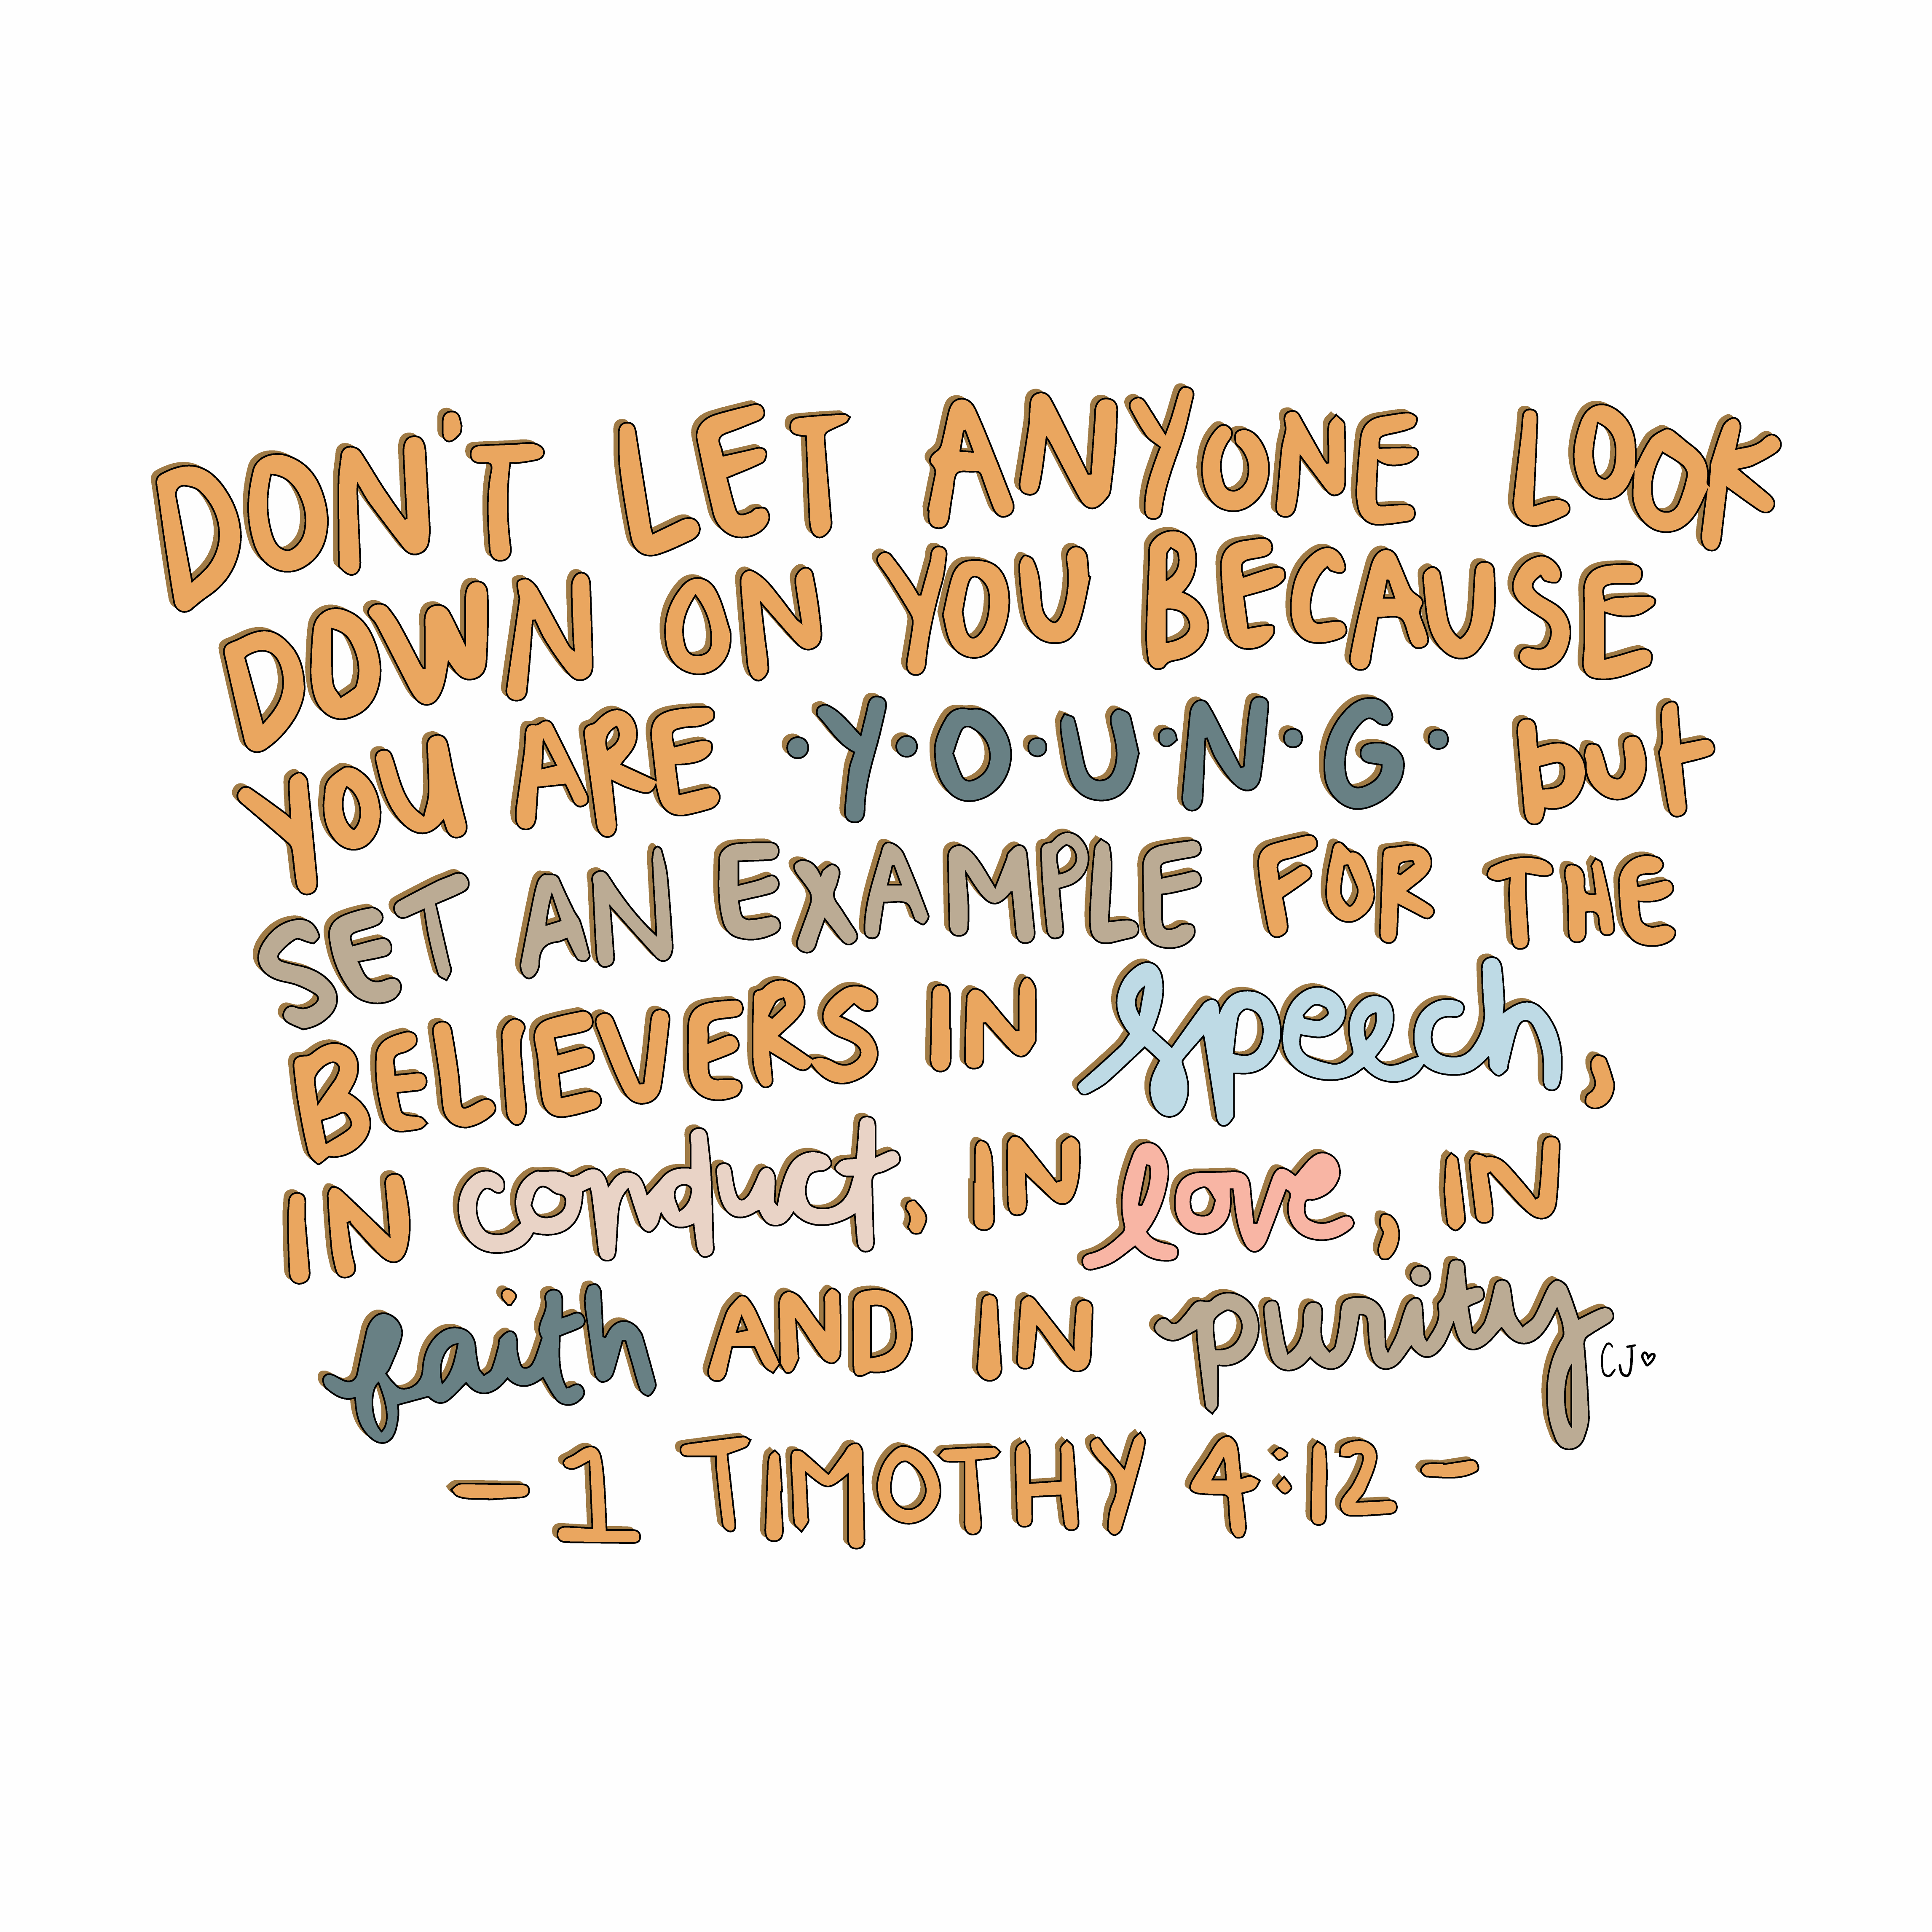 DON'T LET ANYONE LOOK
DOWN ON YOU BECAUSE
YOU ARE ·Y·O·U·N·G· but
SET AN EXAMPLE FOR THE
BELIEVERS IN speech,
IN conduct, IN love, IN
faith AND IN purity
CJ♡
—1 TIMOTHY 4:12—